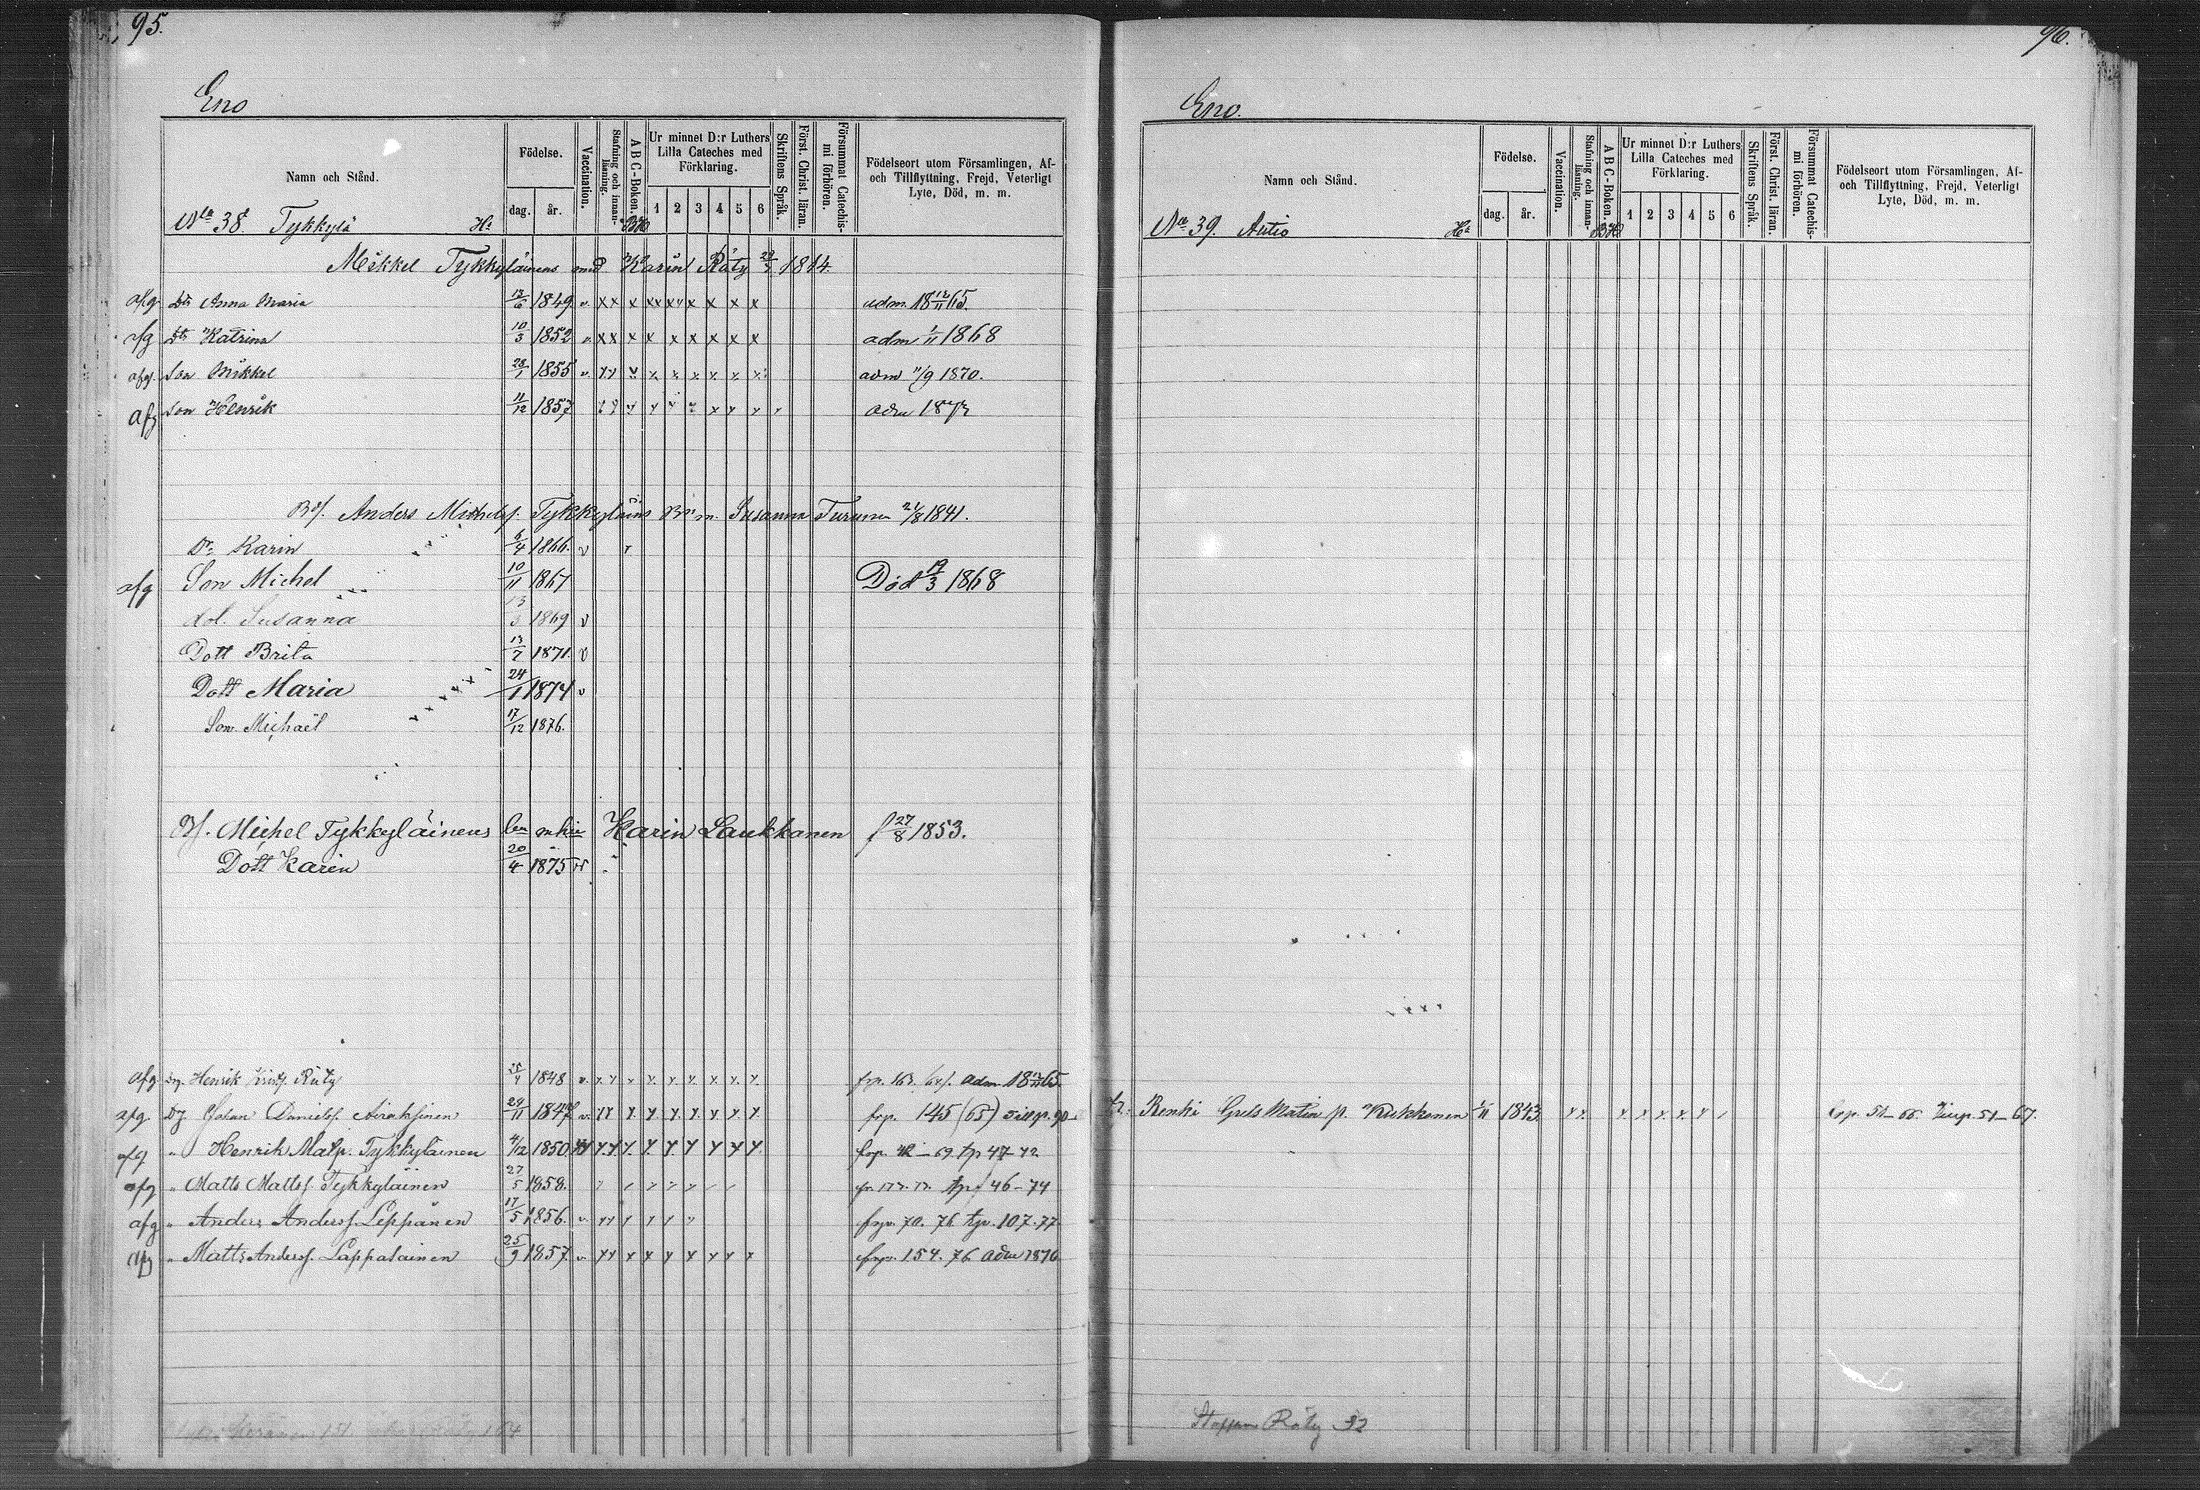 95.
Eno
Namn och Stånd.
Födelse.
dag.
år.
Vaccination.
Stafning och innan-
läsning.
A B C-Boken.
Ur minnet D:r Luthers
Lilla Cateches med
Förklaring.
1 2 3 4 5 6
Skriftens Språk.
Först. Christ. läran.
Försummat Catechis-
mi förhören.
Födelseort utom Församlingen, Af-
och Tillflyttning, Frejd, Veterligt
Lyte, Död, m. m.
38 Tykkylä
Mikkel Tykkyläinens Karin Räty 1814.
afg Dtr Anna Maria 13/6 1849 v. x x x x x x x x x x x adm. 1865.
afg Dtr Katrina 10/3 1852 v. x x x x x x x x x adm 1/11 1868
afg. Son Mikkel 1855 v. adm 11/9 1870.
afg Son Henrik 11/12 1857 adm
Anders Michelsf. Tykkyläins m. Susanna Turunen 1841.
Dr Karin 6/4 1866. v
afg Son Michel 10/11 1867 Död 19/3 1868
Susanna 1869 v
Dott Brita 13/7 1871. v
Dott Maria 24/1 1874 v
Son Michaël 17/12 1876.
Michel Tykkyläinens Karin Laukkanen f 27/8 1853.
Dott Karin 20/4 1875
afg Henrik Räty 1848 v. adm. 1865.
afg Johan Danielsf. Airaksinen 29/11 1847 v. frp. 145 (65)
afg " Henrik Matp. Tykkyläinen 4/12 1850 frp. 42-69 tp 47-72
afg " Matts Mattsf. Tykkyläinen 27/5 1858. tp. 46-74
afg " Anders Andersf. Leppänen 17/5 1856. v. frp. 70. 76 tp. 107. 77.
afg " Matts Andersf. Lappalainen 25/9 1857. v. frp. 154. 76 adm 1876
96.
Eno.
Namn och Stånd.
Födelse.
dag.
år.
Vaccination.
Stafning och innan-
läsning.
A B C-Boken.
Ur minnet D:r Luthers
Lilla Cateches med
Förklaring.
1 2 3 4 5 6
Skriftens Språk.
Först. Christ. läran.
Försummat Catechis-
mi förhören.
Födelseort utom Församlingen, Af-
och Tillflyttning, Frejd, Veterligt
Lyte, Död, m. m.
39. Autio
Renki Grels Matin p. Kukkonen 1/11 1843.
Räty